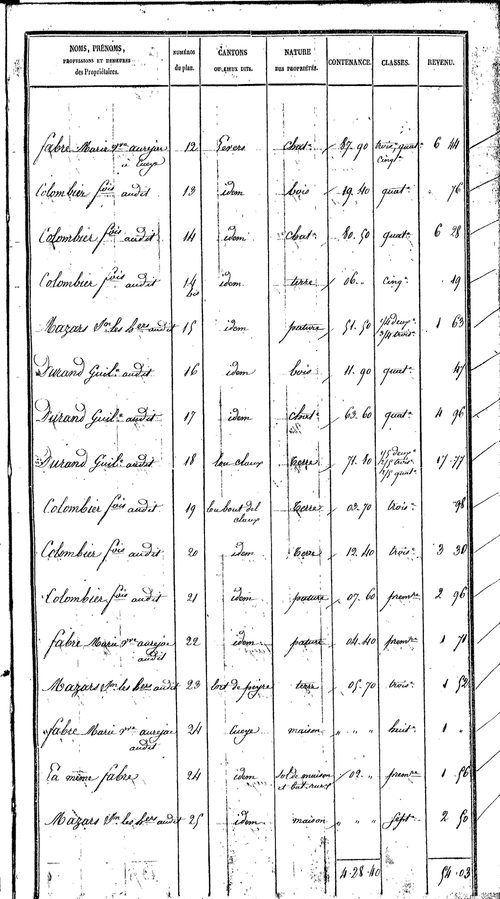 NOMS, PRÉNOMS, PROFESSIONS ET DEMEURES des Propriétaires. NUMÉROS du plan. CANTONS OU LIEUX DITS. NATURE DES PROPRIÉTÉS. CONTENANCE. CLASSES. REVENU.
fabre Marie vve aurejac 12 chat.e 87 90 trois, quat. 6 44
à cinq.
Colombier fois audit 13 idem bois 19 40 quat. 76
Colombier fois audit 14 idem chat.e 80 50 quat. 6 28
Colombier fois audit 14 bis idem terre 06 " cinq. 19
Mazars les hers audit 15 idem pature 51 50 1/4 deux. 3/4 trois. 1 63
Durand Guil.e audit 16 idem bois 11 90 quat. 47
Durand Guil.e audit 17 idem chat.e 63 60 quat. 4 96
Durand Guil.e audit 18 lou claux terre 71 80 17 77
Colombier fois audit 19 lou bout del claux terre 03 70 trois. 98
Colombier fois audit 20 idem terre 12 40 trois. 3 30
Colombier fois audit 21 idem pature 07 60 premre 2 96
fabre Marie vve aurejac audit 22 idem pature 04 40 premre 1 71
Mazars les hers audit 23 terre 05 70 trois. 1 52
fabre Marie vve aurejac audit 24 maison " " " huit. 1 "
La même fabre 24 idem sol de maison et bat. rur. 02 " premre 1 56
Mazars les hers audit 25 idem maison " " " sept. 2 50
4 28 40 54 03